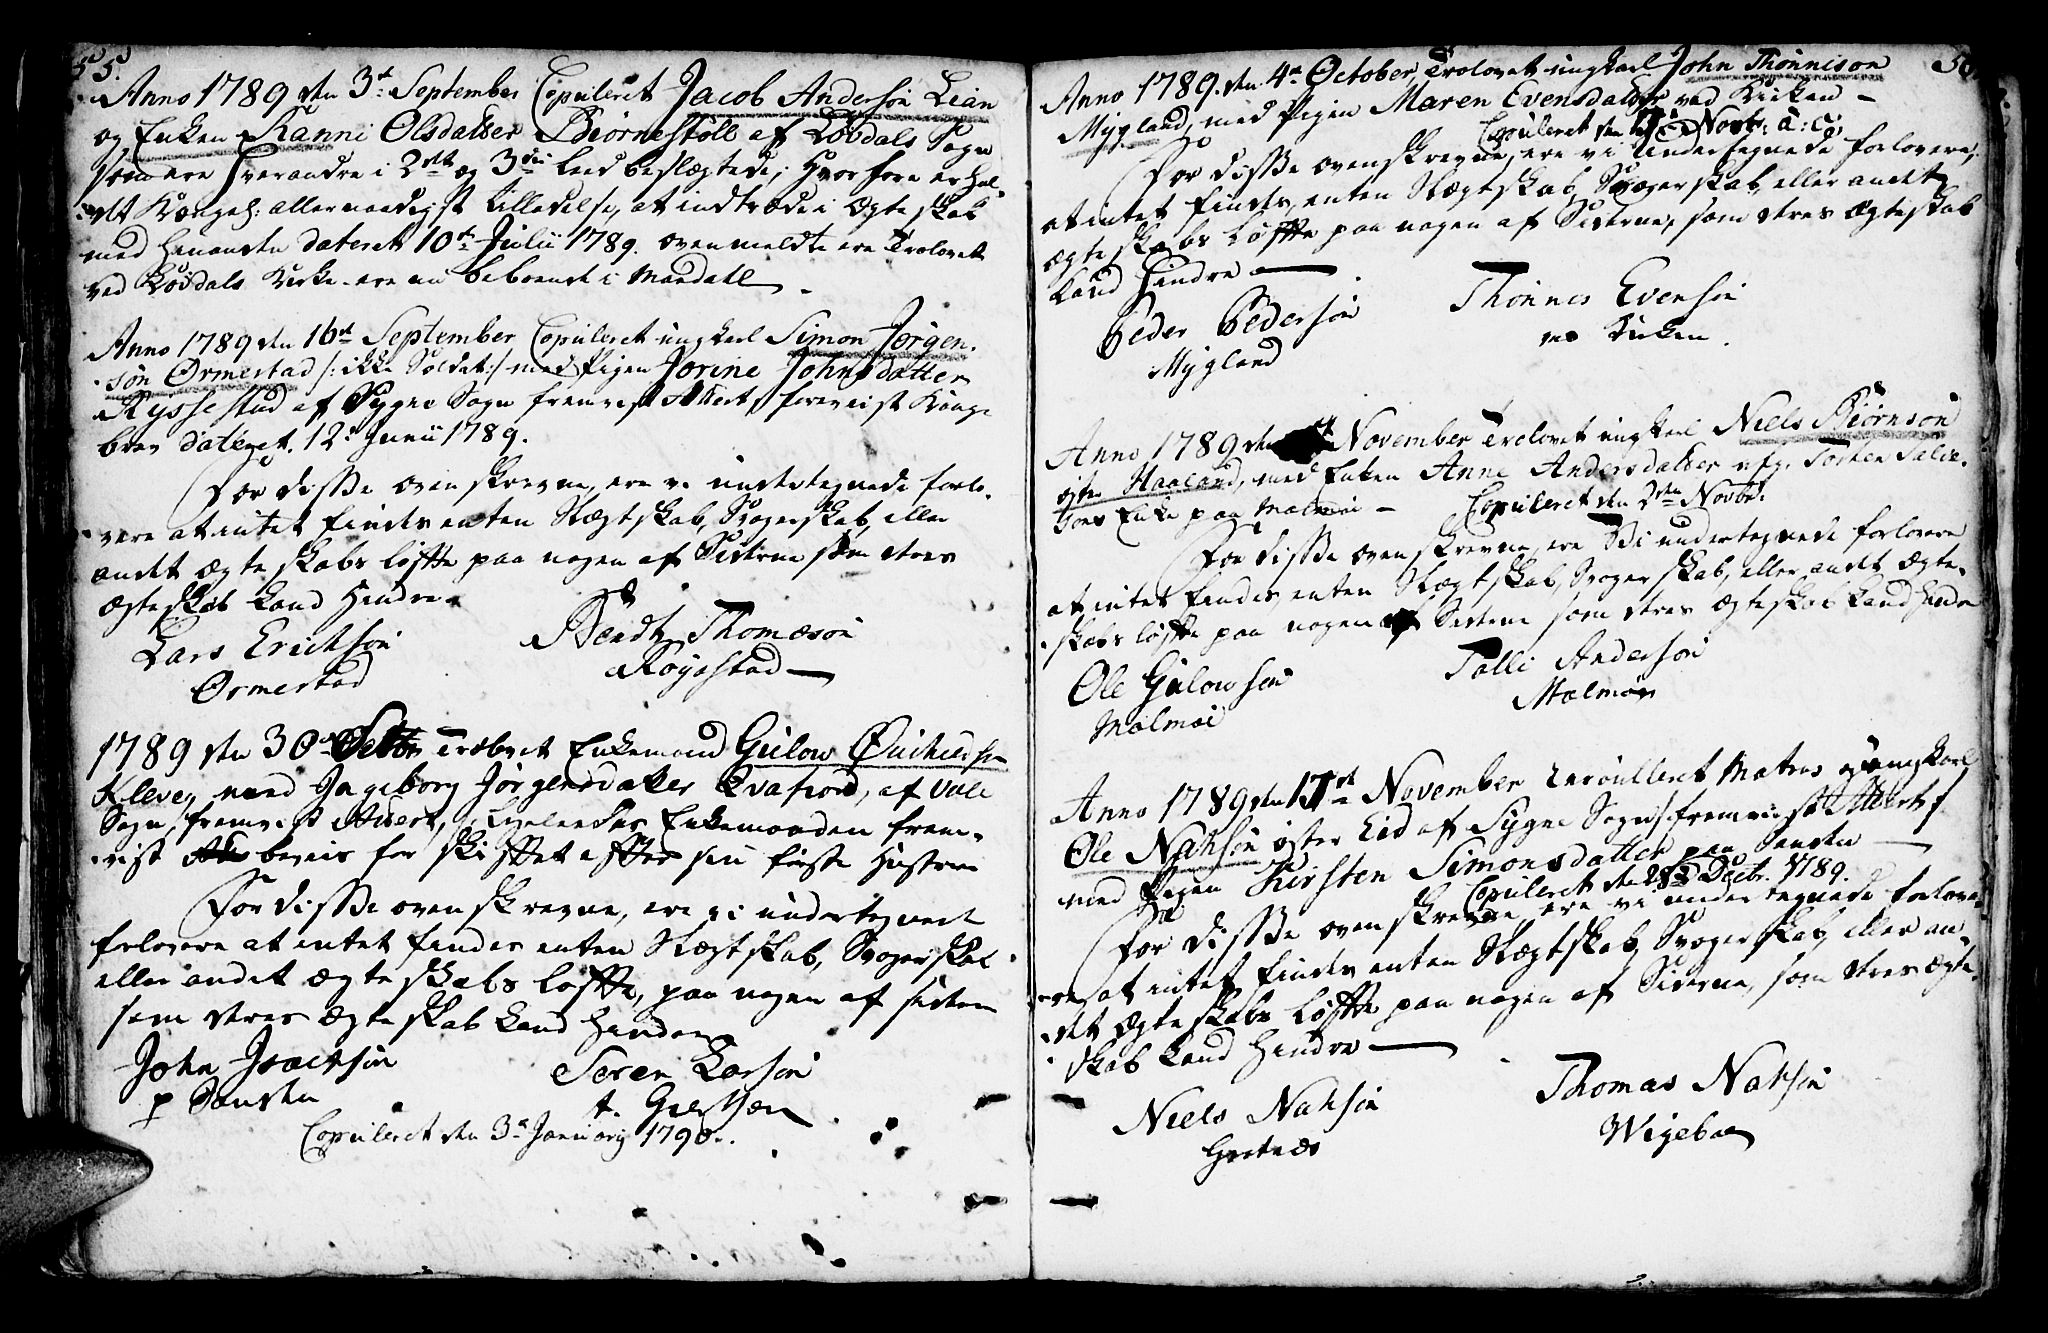 55.
Anno 1789 den 3de September Copuleret Jacob Anderson Lian
og Enken Ranni Olsdatter Biørnestøll af Løvdals Sogn
som ere Hverandre i 2det og 3die Leed beslægtede; Hvorfore er hol-
det Kongel: allernaadigst tilladelse, at indtræde i Ægteskab
med Hinanden dateret 10de Julii 1789. ovenmeldte ere Trolovet
ved Løvdals Kirke. ere nu beboende i Mandall.
Anno 1789 den 16de September Copuleret ungkarl Simon Jørgen-
søn Ørmestad /: ikke Soldat :/ med Pigen Jorine Johnsdatter
Ryssestad af Sygne Sogn fremvist Attest, foreviist Konge
brev dateret. 12: Junii 1789.
For disse ovenskrevne, ere vi undertegnede forlo-
vere at intet findes enten Slægtskab, Svogerskab, eller
andet Ægteskabs løfte paa nogen af Siderne som deres
Ægteskab kand Hindre.
Lars Erichsøn
Ørmestad
Bendt Thomæsøn
Røyestad
1789 den 30de Octbr Trolovet Enkemand Gulow
Kleve, med Ingeborg Jørgensdatter af Valle
Sogn, fremvist Attest, Enkemanden frem-
vist beviis for skiftet efter sin første Hustrue
For disse ovenskrevne, ere vi undertegnede
forlovere at intet findes enten Slægtskab, Svogerskab
eller andet Ægteskabs Løfte, paa nogen af siderne
som deres Ægteskab kand Hindre
John Isaachsøn
p Sanden
Søren Larsøn
Copuleret den 3de Januarij 1790.
56.
Anno 1789. den 4de October, Trolovet ungkarl John Thønnison
Mygland, med Pigen Maren Evensdatter ved Kirken
Copuleret den Novb: a: c:
For disse ovenskrevne, ere vi Undertegnede forlovere,
at intet findes, enten Slægtskab, Svogerskab, eller andet
Ægteskabs Løfte paa nogen af Siderne, som deres Ægteskab
kand Hindre
Peder Pedersøn
Mygland
Thønnes Evensøn
ved Kirken.
Anno 1789 den November Trolovet ungkarl Niels Biørnson
øster Haaland, med Enken Anne Andersdatter afg. Torkel Salve-
sons Enke paa Malmøe
Copuleret den 2den Novbr.
For disse ovenskrevne, ere Vi undertegnede forlovere
at intet findes, enten Slægtskab, Svogerskab, eller andet Ægte-
skabs løfte paa nogen af Siderne som deres Ægteskab kand Hindre
Ole Gulowsøn
Malmøe
Talli Andersøn
Malmøe
Anno 1789 den 17de November Enroulleret Matros ungkarl
Ole Nahsøn øster Eid af Sygne Sogn /: fremviist Attest :/
med Pigen Kirsten Simonsdatter paa Sanden
Copuleret den 28de Decbr. 1789.
For disse ovenskrevne ere vi undertegnede forlove-
re at intet findes enten Slægtskab, Svogerskab, eller an-
det Ægteskabs Løfte paa nogen af Siderne, som deres Ægte-
skab kand Hindre
Niels Nahsøn
Thomas Nahsøn
Wigeboe